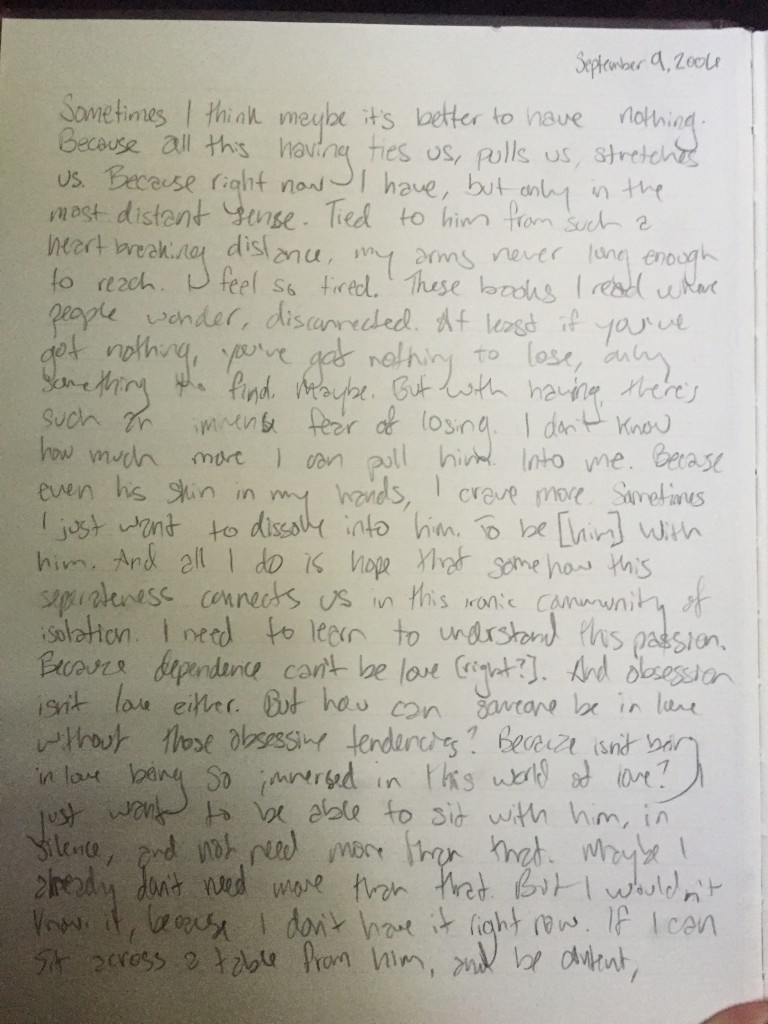 September 9, 2004
Sometimes I think maybe it's better to have nothing.
Because all this having ties us, pulls us, stretches
us. Because right now I have, but only in the
most distant sense. Tied to him from such a
heartbreaking distance, my arms never long enough
to reach. I feel so tired. These books I read where
people wander, disconnected. At least if you've
got nothing, you've got nothing to lose, only
something to find. Maybe. But with having, there's
such an immense fear of losing. I don't know
how much more I can pull him. Into me. Because
even his skin in my hands, I crave more. Sometimes
I just want to dissolve into him. To be [him] with
him. And all I do is hope that somehow this
separateness connects us in this ironic community of
isolation. I need to learn to understand this passion.
Because dependence can't be love [right?]. And obsession
isn't love either. But how can someone be in love
without those obsessive tendencies? Because isn't being
in love being so immersed in this world of love? I
just want to be able to sit with him, in
silence, and not need more than that. Maybe I
already don't need more than that. But I wouldn't
know it, because I don't have it right now. If I can
sit across a table from him, and be content,